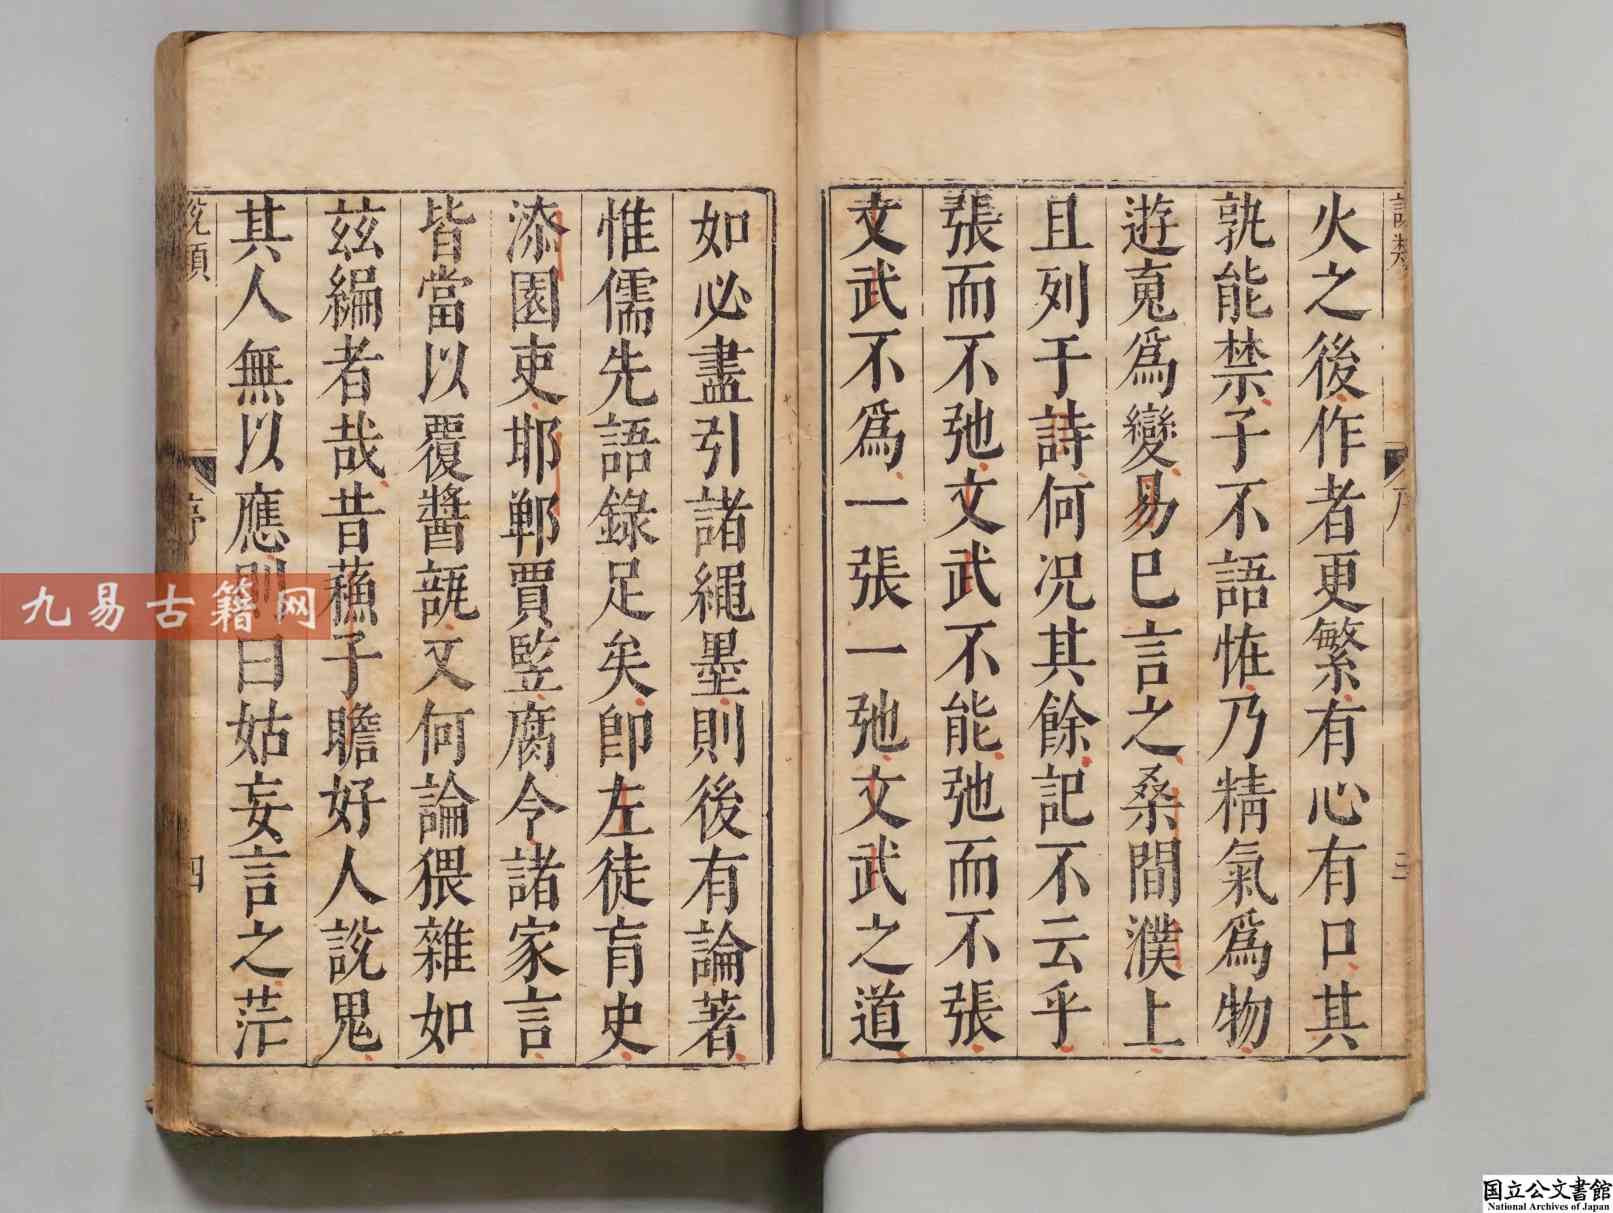 火之後作者更繁有心有口其
孰能禁子不語恠乃精氣爲物
遊䰟爲變易巳言之桑間濮上
且列于詩何况其餘記不云乎
張而不弛文武不能弛而不張
文武不爲一張一弛文武之道
序
三
如必盡引諸繩墨則後有論著
惟儒先語錄足矣卽左徒肓史
漆園吏邯鄲賈監腐令諸家言
皆當以覆醬瓿又何論猥雜如
玆編者哉昔蘓子瞻好人說鬼
其人無以應則曰姑妄言之茫
說類
序
四
九易古籍网
国立公文書館
National Archives of Japan